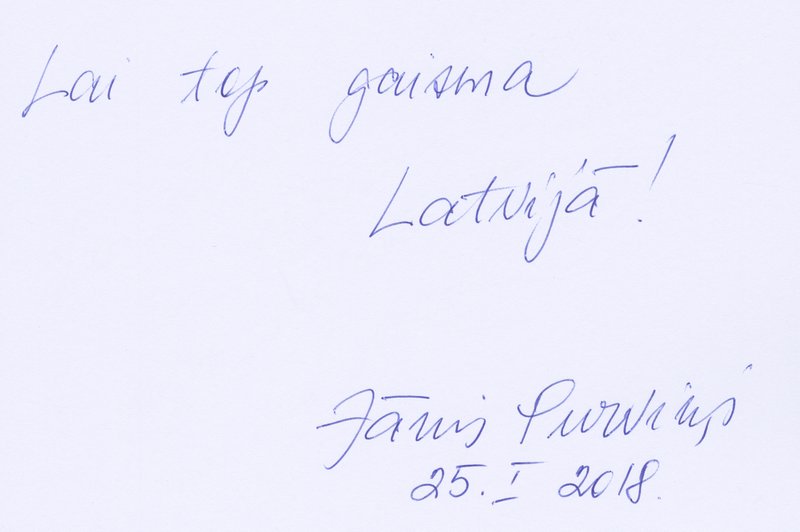 Lai top gaisma
Latvijā!
Jānis Purviņš
25. I 2018.